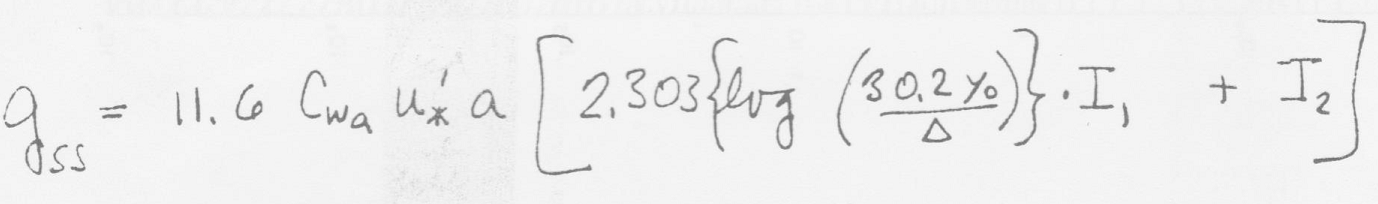 g_ss = 11.6 C_wa u'_* a [2.303{log (30.2 y₀/Δ)}·I₁ + I₂]